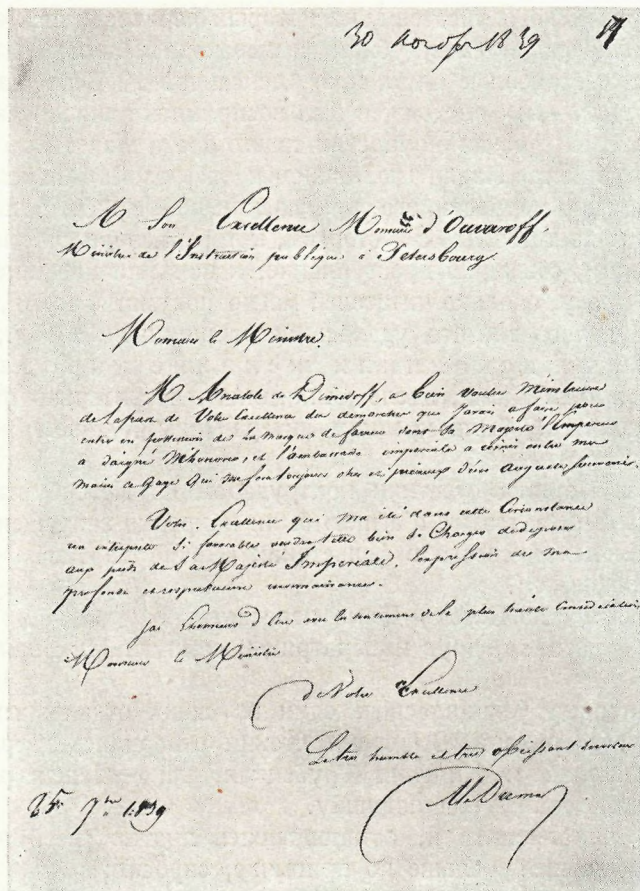 30 ноября 1839
A Son Excellence Monsieur d'Ouvaroff,
Ministre de l'Instruction publique à Petersbourg
Monsieur le Ministre,
M Anatole de Dimidoff, a bien voulu M'instruire
de la part de Votre Excellence des démarches que j'avais à faire pour
entrer en possession de la marque de faveur dont Sa Majesté l'Empereur
a daigné M'honorer, et l'ambassade impériale a remis entre mes
mains ce Gage qui me sera toujours cher et précieux d'un Auguste souvenir.
Votre Excellence qui m'a été dans cette Circonstance
un interprète si favorable voudra-t-elle bien se Charger de déposer
aux pieds de Sa Majesté Impériale, l'expression de ma
profonde et respectueuse reconnaissance.
J'ai L'honneur d'être avec les sentimens de la plus haute considération,
Monsieur le Ministre
de Votre Excellence
Le très humble et très obéissant serviteur
Al. Dumas
25 9bre 1839